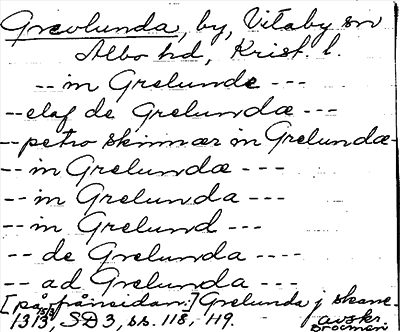 Grevlunda, by, Vitaby sn
Albo hd, Krist. l.
-- in Grelunde ---
-- elaf de Grelundæ ---
-- petro skinnær in Grelundæ -
-- in Grelundæ ---
-- in Grelunda ---
-- in Grelund ---
-- de Grelunda ---
-- ad Grelunda ---
[på frånsidan:] Grelunda j skane -
1313, SD 3, ss. 118, 119. avskr.